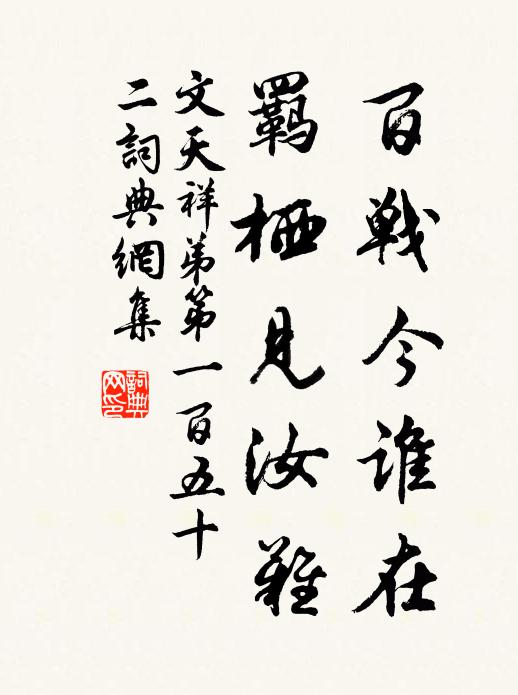 百戰今誰在
羈栖見汝難
文天祥弟第一百五十
二詞典網集
詞典网印